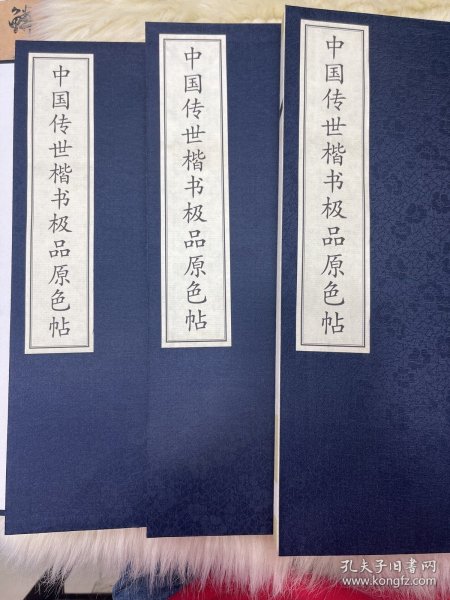 中国传世楷书极品原色帖
中国传世楷书极品原色帖
中国传世楷书极品原色帖
孔夫子旧书网
www.kongfz.com